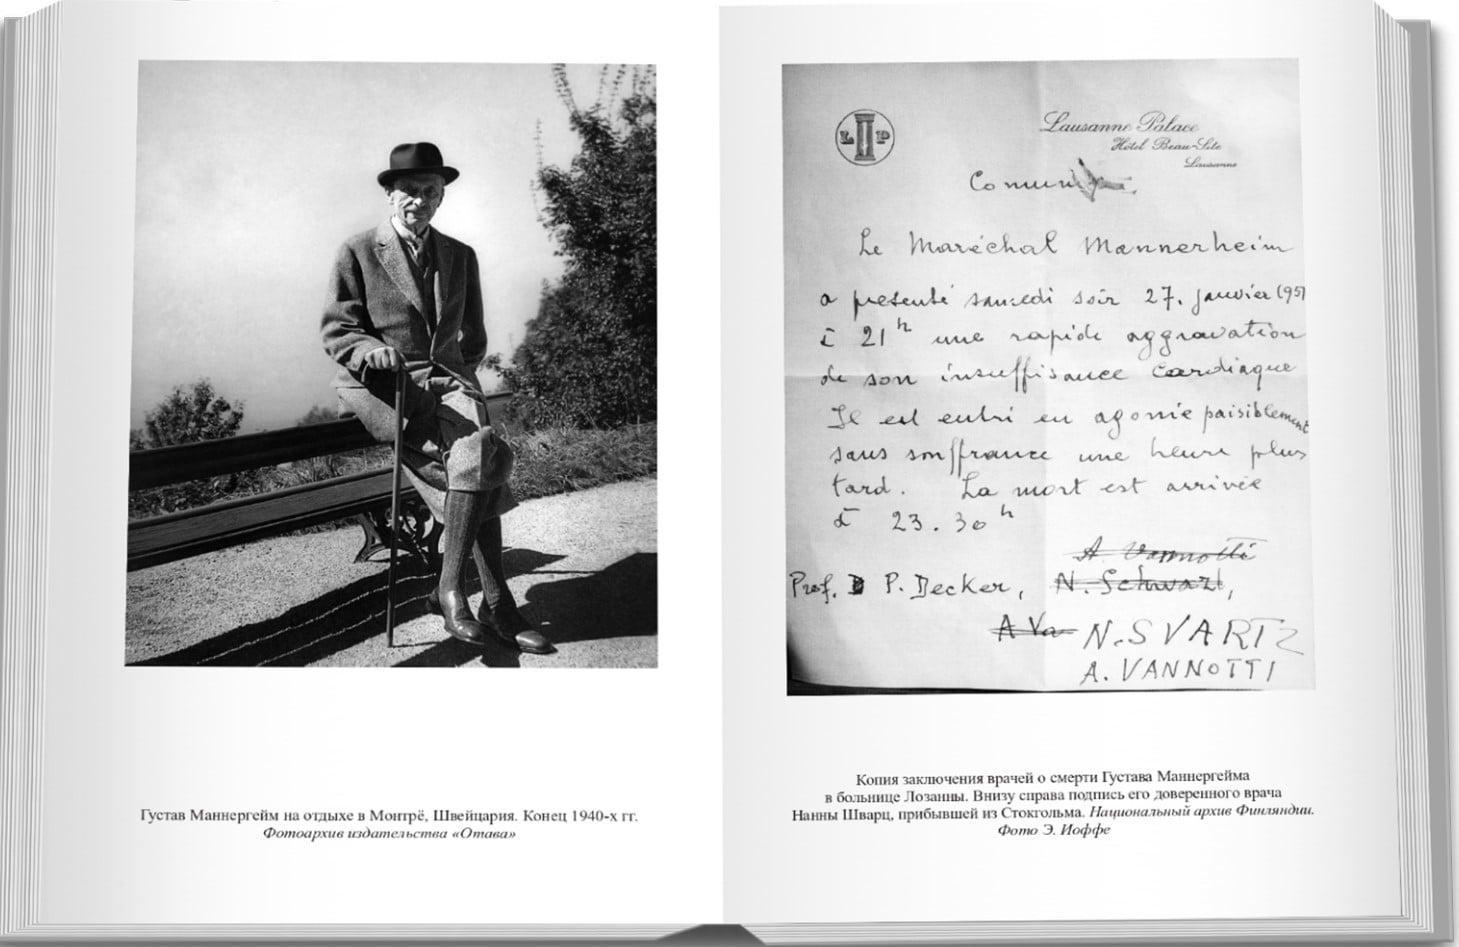 Густав Маннергейм на отдыхе в Монтрё, Швейцария. Конец 1940-х гг.
Фотоархив издательства «Отава»
L P
Lausanne Palace
Hôtel Beau-Site
Lausanne
Le Maréchal Mannerheim
a présenté samedi soir 27. janvier 1951
à 21 h une rapide aggravation
de son insuffisance cardiaque
Il est entré en agonie paisiblement
sans souffrance une heure plus
tard. La mort est arrivée
à 23.30 h
A Vannotti
Prof. P. Decker, N. Schwarz,
A Va N. SVARTZ
A. VANNOTTI
Копия заключения врачей о смерти Густава Маннергейма
в больнице Лозанны. Внизу справа подпись его доверенного врача
Нанны Шварц, прибывшей из Стокгольма. Национальный архив Финляндии.
Фото Э. Иоффе